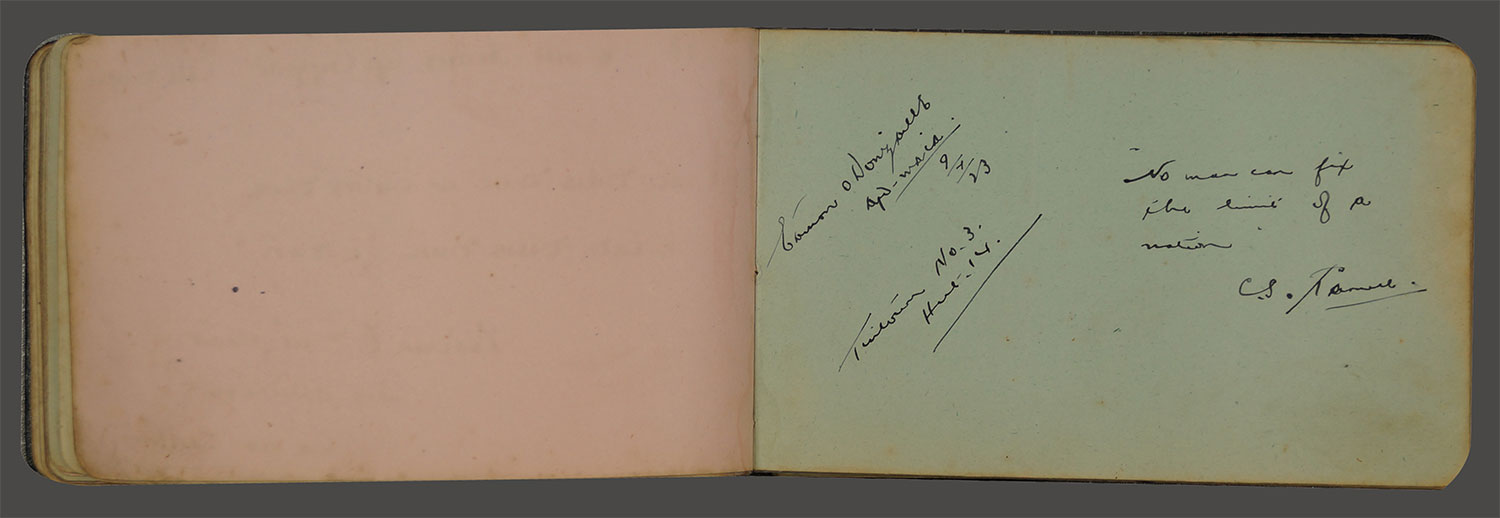 Éamon O Domhnaill
Apd-maca.
9/4/23
Tintown No. 3.
Hut-14.
"No man can fix
the limit of a
nation"
C.S. Parnell.